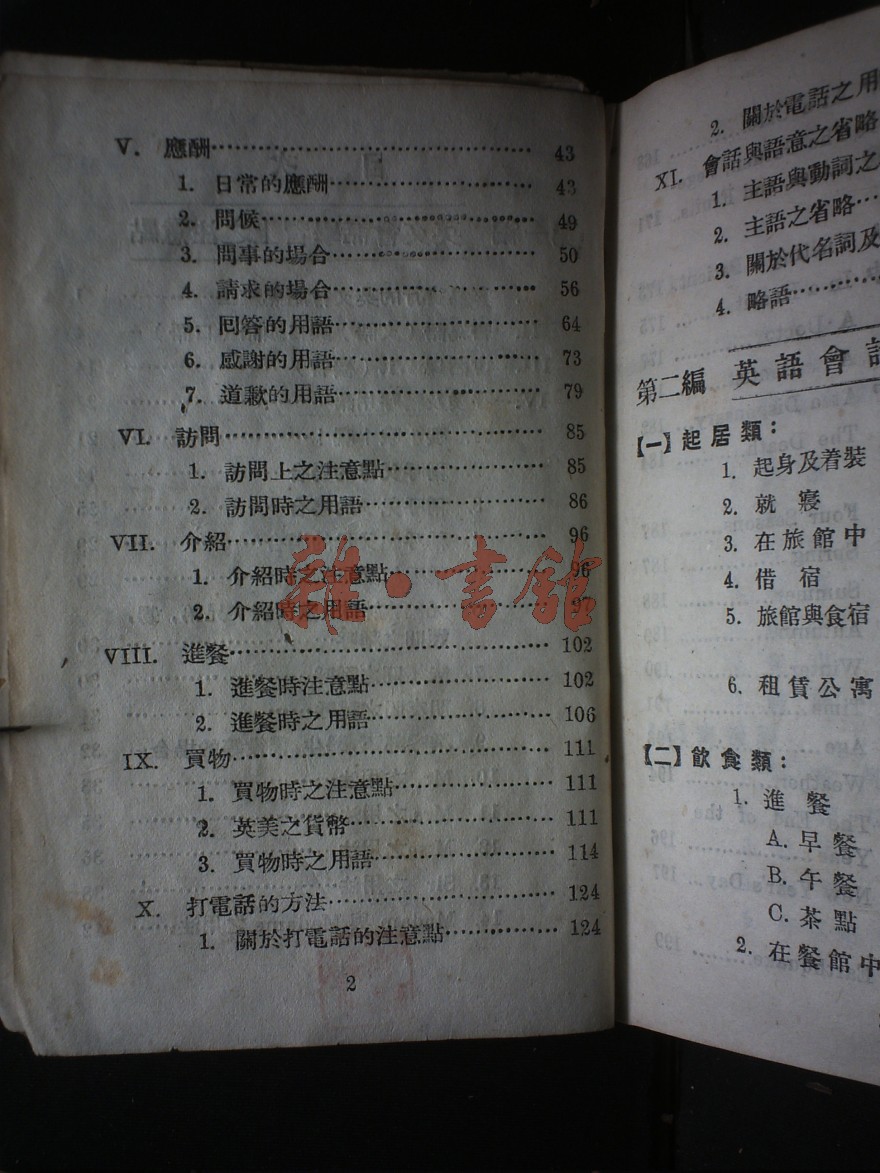 V. 應酬 43
1. 日常的應酬 43
2. 問候 49
3. 問事的場合 50
4. 請求的場合 56
5. 回答的用語 64
6. 感謝的用語 73
7. 道歉的用語 79
VI. 訪問 85
1. 訪問上之注意點 85
2. 訪問時之用語 86
VII. 介紹 96
1. 介紹時之注意點 96
2. 介紹時之用語 97
VIII. 進餐 102
1. 進餐時注意點 102
2. 進餐時之用語 106
IX. 買物 111
1. 買物時之注意點 111
2. 英美之貨幣 111
3. 買物時之用語 114
X. 打電話的方法 124
1. 關於打電話的注意點 124
2
雜·書館
2. 關於電話之用
XI. 會話與語意之省略
1. 主語與動詞之
2. 主語之省略
3. 關於代名詞及
4. 略語
第二編 英語會話
【一】起居類：
1. 起身及着裝
2. 就寢
3. 在旅館中
4. 借宿
5. 旅館與食宿
6. 租賃公寓
【二】飲食類：
1. 進餐
A. 早餐
B. 午餐
C. 茶點
2. 在餐館中